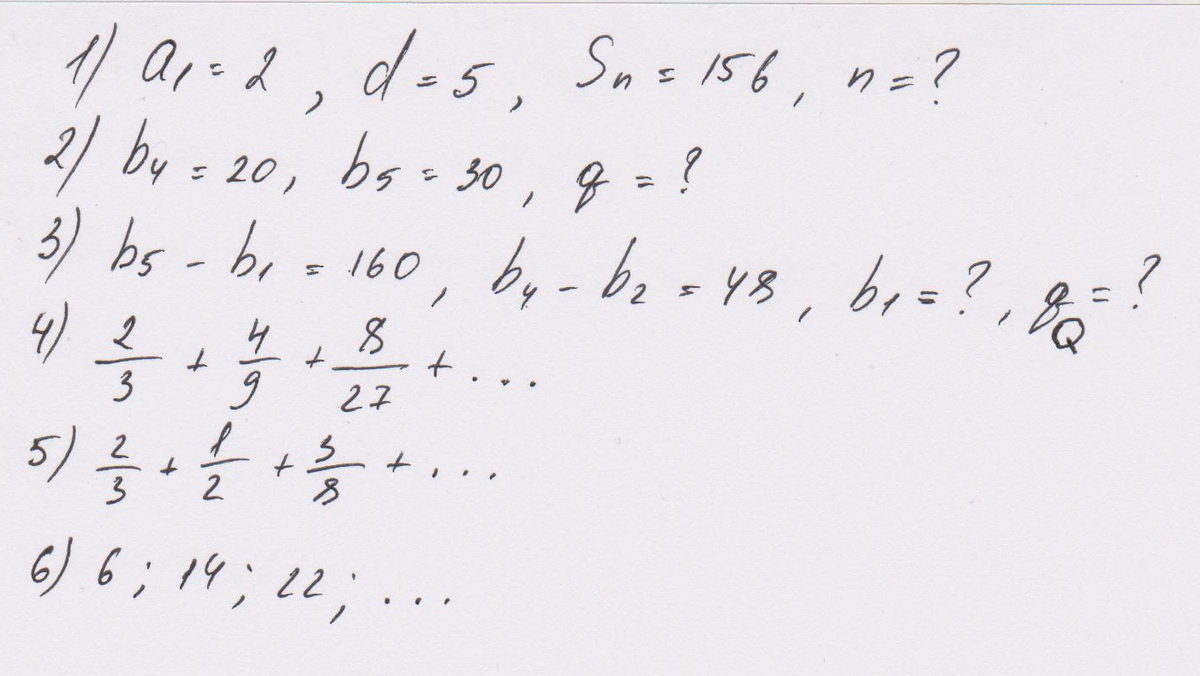 1) a₁ = 2, d = 5, Sₙ = 156, n = ?
2) b₄ = 20, b₅ = 30, q = ?
3) b₅ - b₁ = 160, b₄ - b₂ = 48, b₁ = ?, q = ?
Q
4) 2/3 + 4/9 + 8/27 + ...
5) 2/3 + 1/2 + 3/8 + ...
6) 6; 14; 22; ...